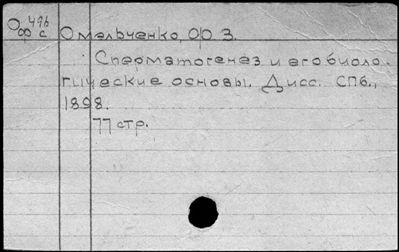 Оф 496
с
Омельченко, Ф. З.
Сперматогенез и его биоло-
гические основы. Дисс. СПб.,
1898.
77 стр.